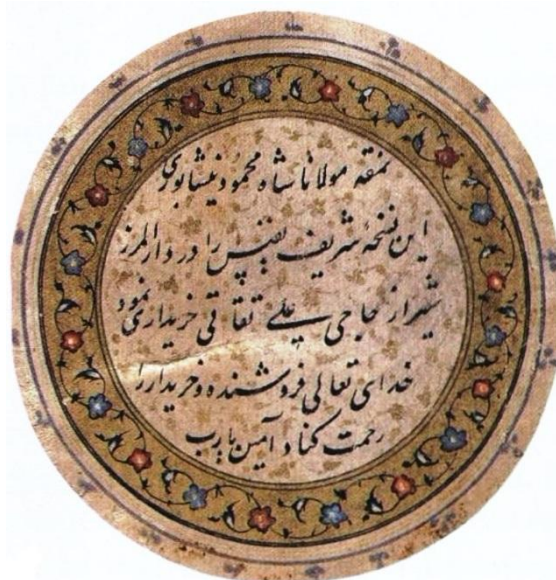 نمقه مولانا شاه محمود نیشابوری
این نسخهٔ شریف نفیس را در دارالمرز
شیراز حاجی علی خریداری نمود
خدای تعالی فروشنده و خریدار را
رحمت کناد آمین یارب